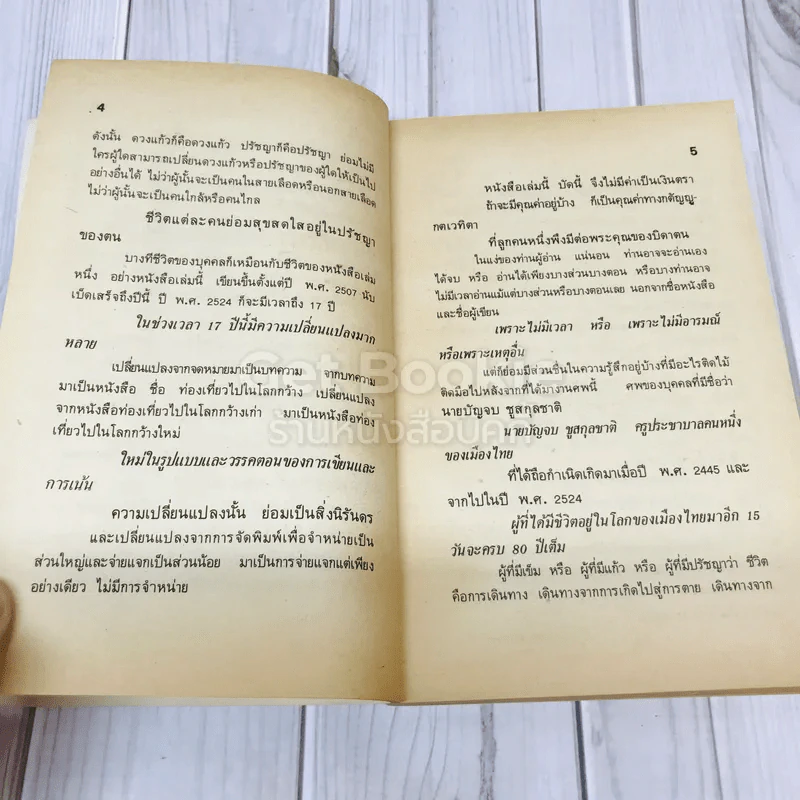 4
ดังนั้น ดวงแก้วก็คือดวงแก้ว ปรัชญาก็คือปรัชญา ย่อมไม่มี
ใครผู้ใดสามารถเปลี่ยนดวงแก้วหรือปรัชญาของผู้ใดให้เป็นไป
อย่างอื่นได้ ไม่ว่าผู้นั้นจะเป็นคนในสายเลือดหรือนอกสายเลือด
ไม่ว่าผู้นั้นจะเป็นคนใกล้หรือคนไกล
ชีวิตแต่ละคนย่อมสุขสดใสอยู่ในปรัชญา
ของตน
บางทีชีวิตของบุคคลก็เหมือนกับชีวิตของหนังสือเล่ม
หนึ่ง อย่างหนังสือเล่มนี้ เขียนขึ้นตั้งแต่ปี พ.ศ. 2507 นับ
เบ็ดเสร็จถึงปีนี้ ปี พ.ศ. 2524 ก็จะมีเวลาถึง 17 ปี
ในช่วงเวลา 17 ปีนี้มีความเปลี่ยนแปลงมาก
หลาย
เปลี่ยนแปลงจากจดหมายมาเป็นบทความ จากบทความ
มาเป็นหนังสือ ชื่อ ท่องเที่ยวไปในโลกกว้าง เปลี่ยนแปลง
จากหนังสือท่องเที่ยวไปในโลกกว้างเก่า มาเป็นหนังสือท่อง
เที่ยวไปในโลกกว้างใหม่
ใหม่ในรูปแบบและวรรคตอนของการเขียนและ
การเน้น
ความเปลี่ยนแปลงนั้น ย่อมเป็นสิ่งนิรันดร
และเปลี่ยนแปลงจากการจัดพิมพ์เพื่อจำหน่ายเป็น
ส่วนใหญ่และจ่ายแจกเป็นส่วนน้อย มาเป็นการจ่ายแจกแต่เพียง
อย่างเดียว ไม่มีการจำหน่าย
5
หนังสือเล่มนี้ บัดนี้ จึงไม่มีค่าเป็นเงินตรา
ถ้าจะมีคุณค่าอยู่บ้าง ก็เป็นคุณค่าทางกตัญญู-
กตเวทิตา
ที่ลูกคนหนึ่งพึงมีต่อพระคุณของบิดาตน
ในแง่ของท่านผู้อ่าน แน่นอน ท่านอาจจะอ่านเอง
ได้จบ หรือ อ่านได้เพียงบางส่วนบางตอน หรือบางท่านอาจ
ไม่มีเวลาอ่านแม้แต่บางส่วนหรือบางตอนเลย นอกจากชื่อหนังสือ
และชื่อผู้เขียน
เพราะไม่มีเวลา หรือ เพราะไม่มีอารมณ์
หรือเพราะเหตุอื่น
แต่ก็ย่อมมีส่วนชื่นในความรู้สึกอยู่บ้างที่มีอะไรติดไม้
ติดมือไปหลังจากที่ได้มางานศพนี้ ศพของบุคคลที่มีชื่อว่า
นายบัญจบ ชูสกุลชาติ
นายบัญจบ ชูสกุลชาติ ครูประชาบาลคนหนึ่ง
ของเมืองไทย
ที่ได้ถือกำเนิดเกิดมาเมื่อปี พ.ศ. 2445 และ
จากไปในปี พ.ศ. 2524
ผู้ที่ได้มีชีวิตอยู่ในโลกของเมืองไทยมาอีก 15
วันจะครบ 80 ปีเต็ม
ผู้ที่มีเข็ม หรือ ผู้ที่มีแก้ว หรือ ผู้ที่มีปรัชญาว่า ชีวิต
คือการเดินทาง เดินทางจากการเกิดไปสู่การตาย เดินทางจาก
Get Book
ร้านหนังสือ